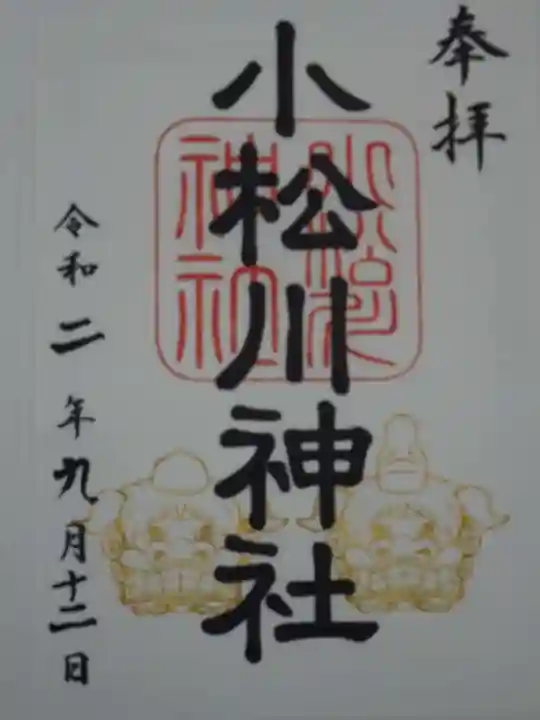 奉拝
小松川神社
令和二年九月十二日